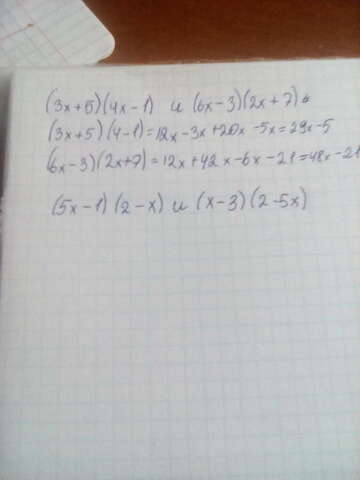 (3x+5)(4x-1) и (6x-3)(2x+7)
(3x+5)(4-1)=12x-3x+20x-5x=29x-5
(6x-3)(2x+7)=12x+42x-6x-21=48x-21
(5x-1)(2-x) и (x-3)(2-5x)